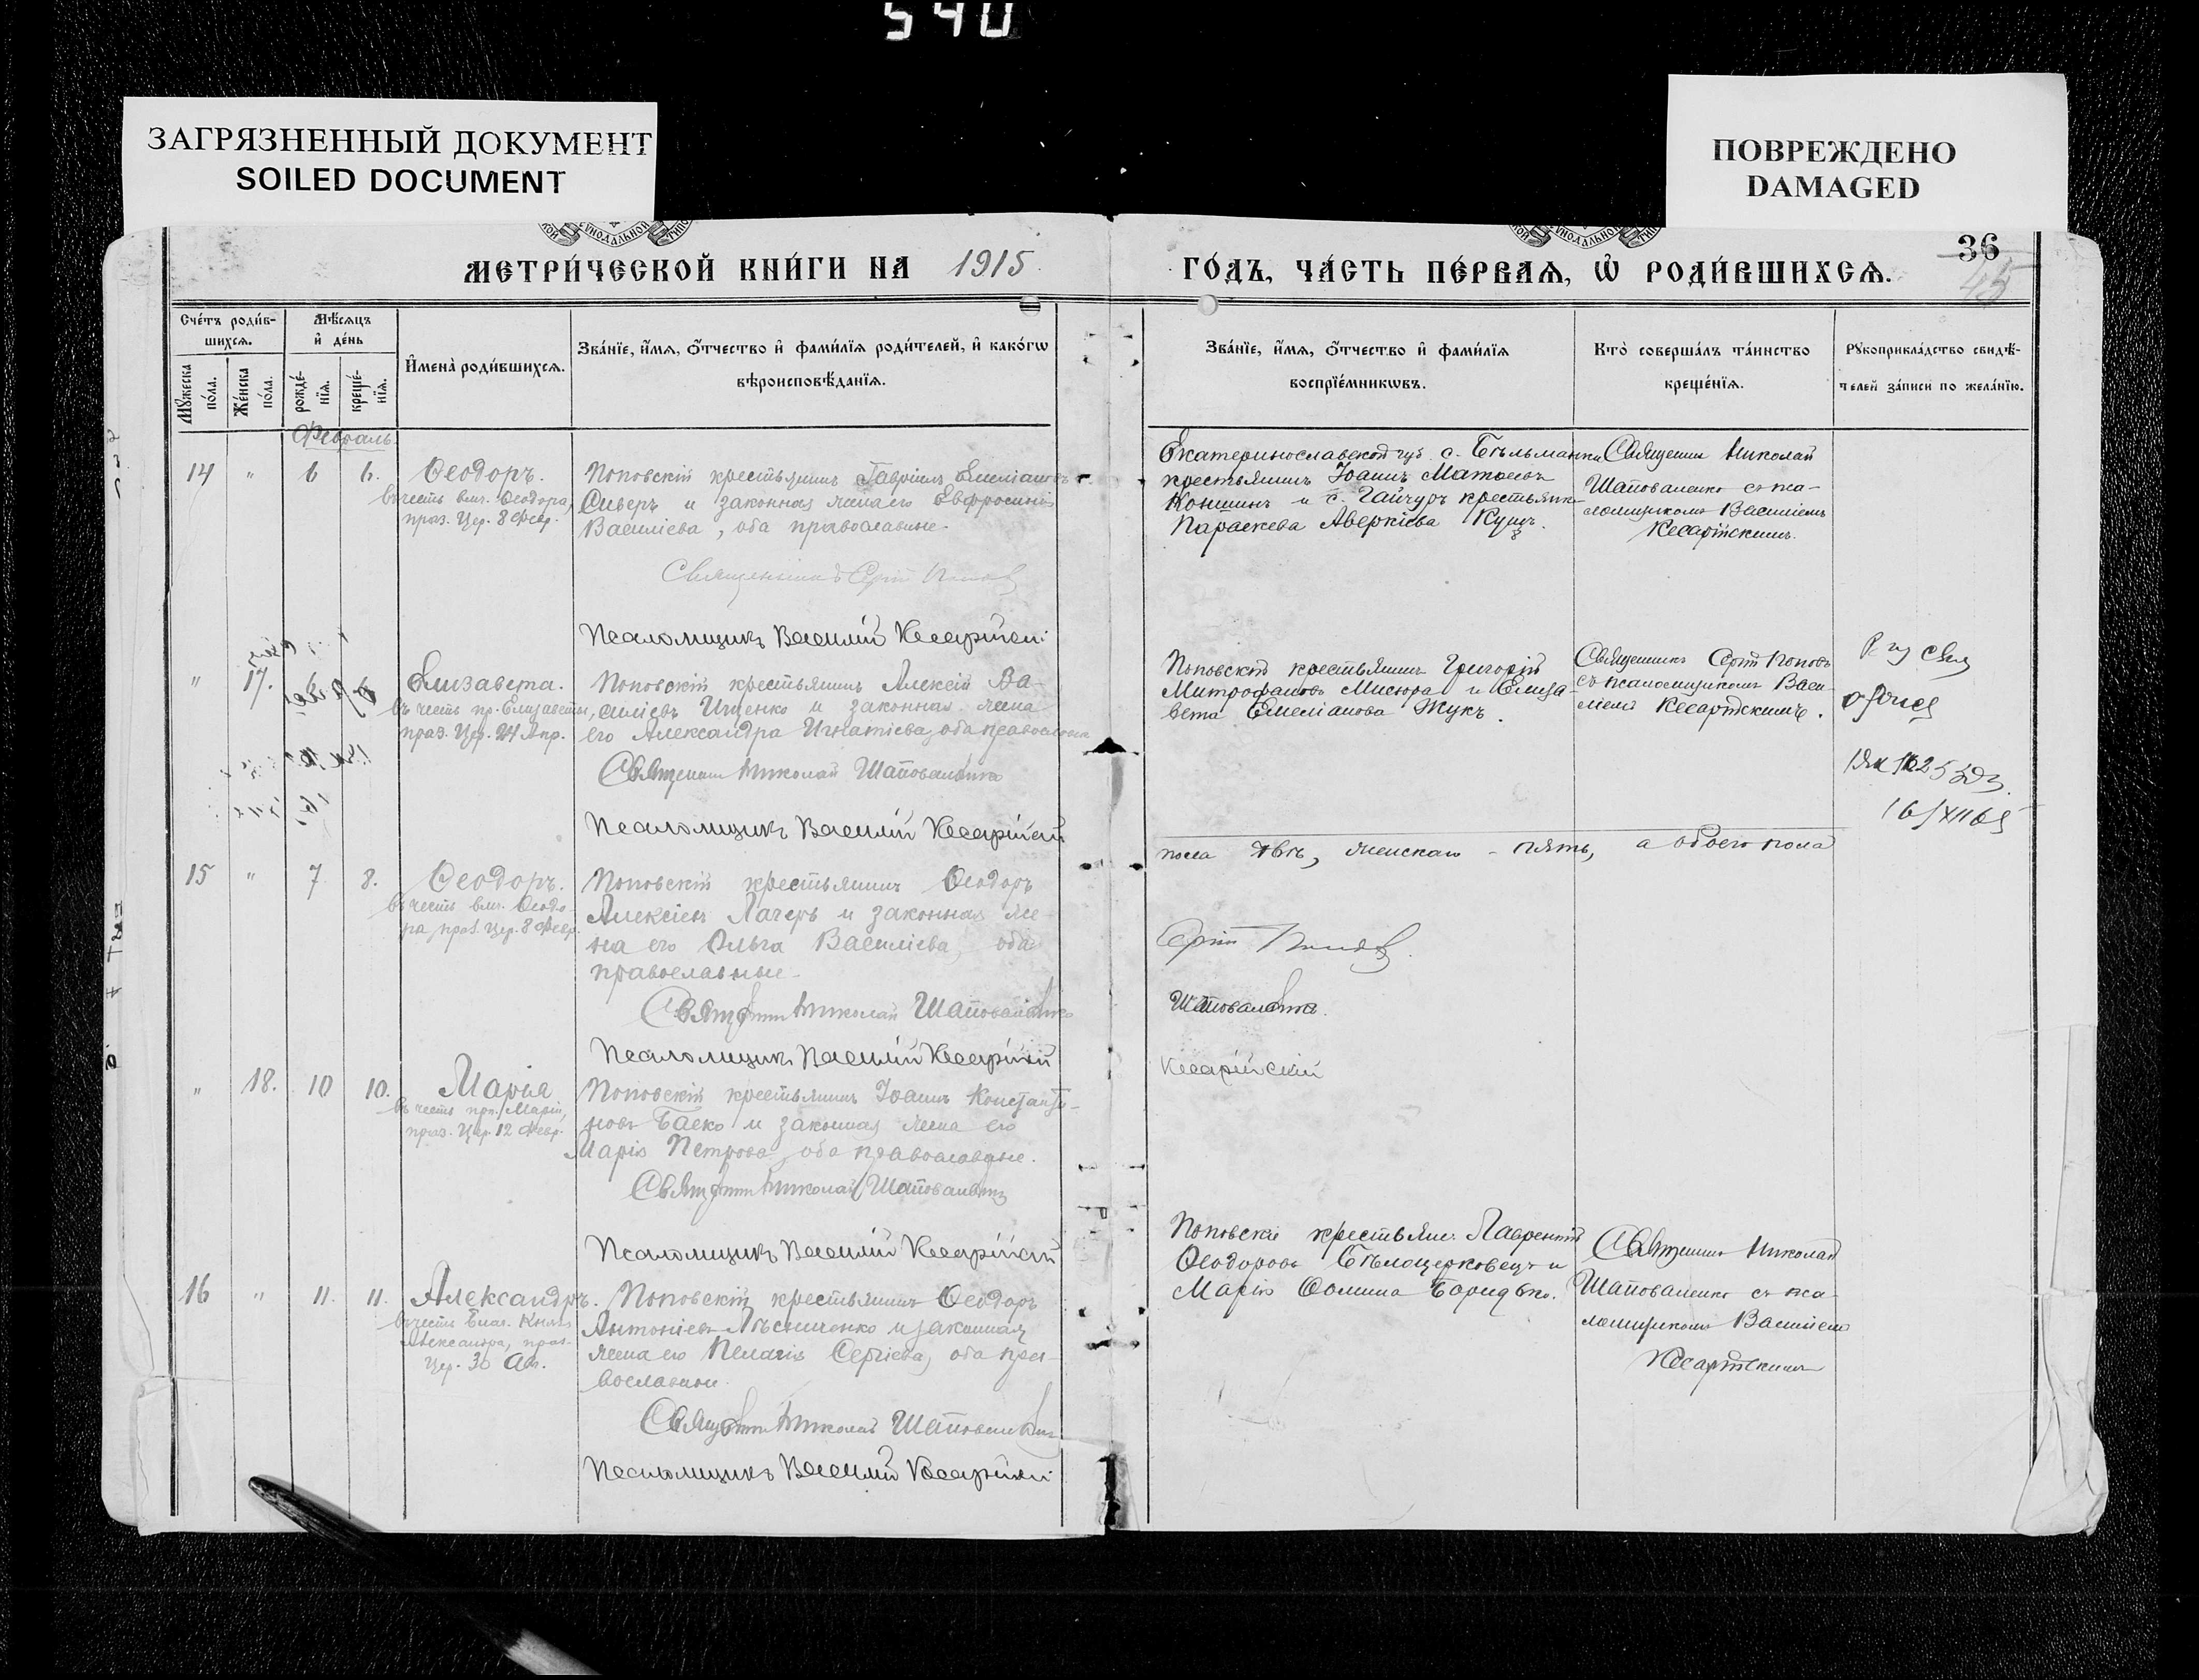 540
ЗАГРЯЗНЕННЫЙ ДОКУМЕНТ
SOILED DOCUMENT
ПОВРЕЖДЕНО
DAMAGED
36
45
МЕТРИ́ЧЕСКОЙ КНИ́ГИ НА 1915
ГО́ДЪ, ЧА́СТЬ ПЕ́РВАѦ, Ѡ РОДИ́ВШИХСѦ.
Сче́тъ роди́в-
шихсѧ.
Мѣ́сѧцъ
и҆ де́нь
Мꙋ́жеска по́ла.
Же́нска по́ла.
рожде́-нїѧ.
креще́-нїѧ.
И҆мена̀ роди́вшихсѧ.
Зва́нїе, и҆́мѧ, ѻ҆́тчество и҆ фами́лїѧ роди́телей, и҆ како́гѡ
вѣроисповѣ́данїѧ.
Зва́нїе, и҆́мѧ, ѻ҆́тчество и҆ фами́лїѧ
воспрїе́мникѡвъ.
Кто̀ соверша́лъ та́инство
креще́нїѧ.
Рꙋкоприкла́дство свидѣ́-
телей за́писи по жела́нїю.
Февраль
14 " 6 6. Ѳеодоръ.
въ честь влм. Ѳеодора,
праз. Цер. 8 Февр.
Поповскій крестьянинъ Гавріилъ Емеліановъ
Сиверъ и законная жена его Евфросинія
Василіева, оба православные.
Священникъ Сергій Поповъ
Псаломщикъ Василій Кесарійскій
Екатеринославской губ. с. Бѣльманки
крестьянинъ Іоаннъ Матѳеевъ
Коншинъ и с. Гайчуръ крестьянка
Параскева Аверкіева Кущъ.
Священникъ Николай
Шаповаленко съ пса-
ломщикомъ Василіемъ
Кесарійскимъ.
" 17. 6 6 Елизавета.
въ честь пр. Елизаветы,
праз. Цер. 24 Апр.
Поповскій крестьянинъ Алексій Ва-
силіевъ Ищенко и законная жена
его Александра Игнатіева, оба православные
Священникъ Николай Шаповаленко
Псаломщикъ Василій Кесарійскій
Поповскій крестьянинъ Григорій
Митрофановъ Мисюра и Елиза-
вета Емеліанова Жукъ.
Священникъ Сергій Поповъ
съ псаломщикомъ Васи-
ліемъ Кесарійскимъ.
пола двѣ, женскаго - пять, а обоего пола
15 " 7 8. Ѳеодоръ.
въ честь влм. Ѳеодо-
ра, праз. Цер. 8 Февр.
Поповскій крестьянинъ Ѳеодоръ
Алексіевъ Лагеръ и законная же-
на его Ольга Василіева, оба
православные.
Священникъ Николай Шаповаленко
Псаломщикъ Василій Кесарійскій
Сергій Поповъ.
Шаповаленко.
Кесарійскій
" 18. 10 10. Марія
въ честь прп. Маріи,
праз. Цер. 12 Февр.
Поповскій крестьянинъ Іоаннъ Константи-
новъ Баско и законная жена его
Марія Петрова, оба православные.
Священникъ Николай Шаповаленко
Псаломщикъ Василій Кесарійскій
16 " 11. 11. Александръ.
въ честь Благ. Князя
Александра, праз.
Цер. 30 Авг.
Поповскій крестьянинъ Ѳеодоръ
Антоніевъ Лѣсниченко и законная
жена его Пелагія Сергіева, оба пра-
вославные.
Священникъ Николай Шаповаленко
Псаломщикъ Василій Кесарійскій
Поповскіе крестьяне: Лаврентій
Ѳеодоровъ Бѣлоцерковецъ и
Марія Ѳомина
Священникъ Николай
Шаповаленко съ пса-
ломщикомъ Василіемъ
Кесарійскимъ